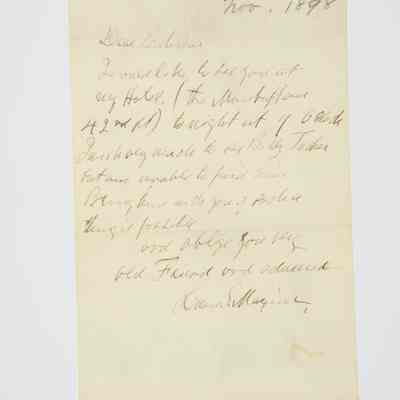 Nov. 1898
Dear
I would like to see you at
my Hotel. (The
42nd St) tonight at 9 O'Clock
I wish very much to see Billy
but am unable to find him
Bring him with you, if such a
thing is possible
and oblige your very
old Friend and admirer